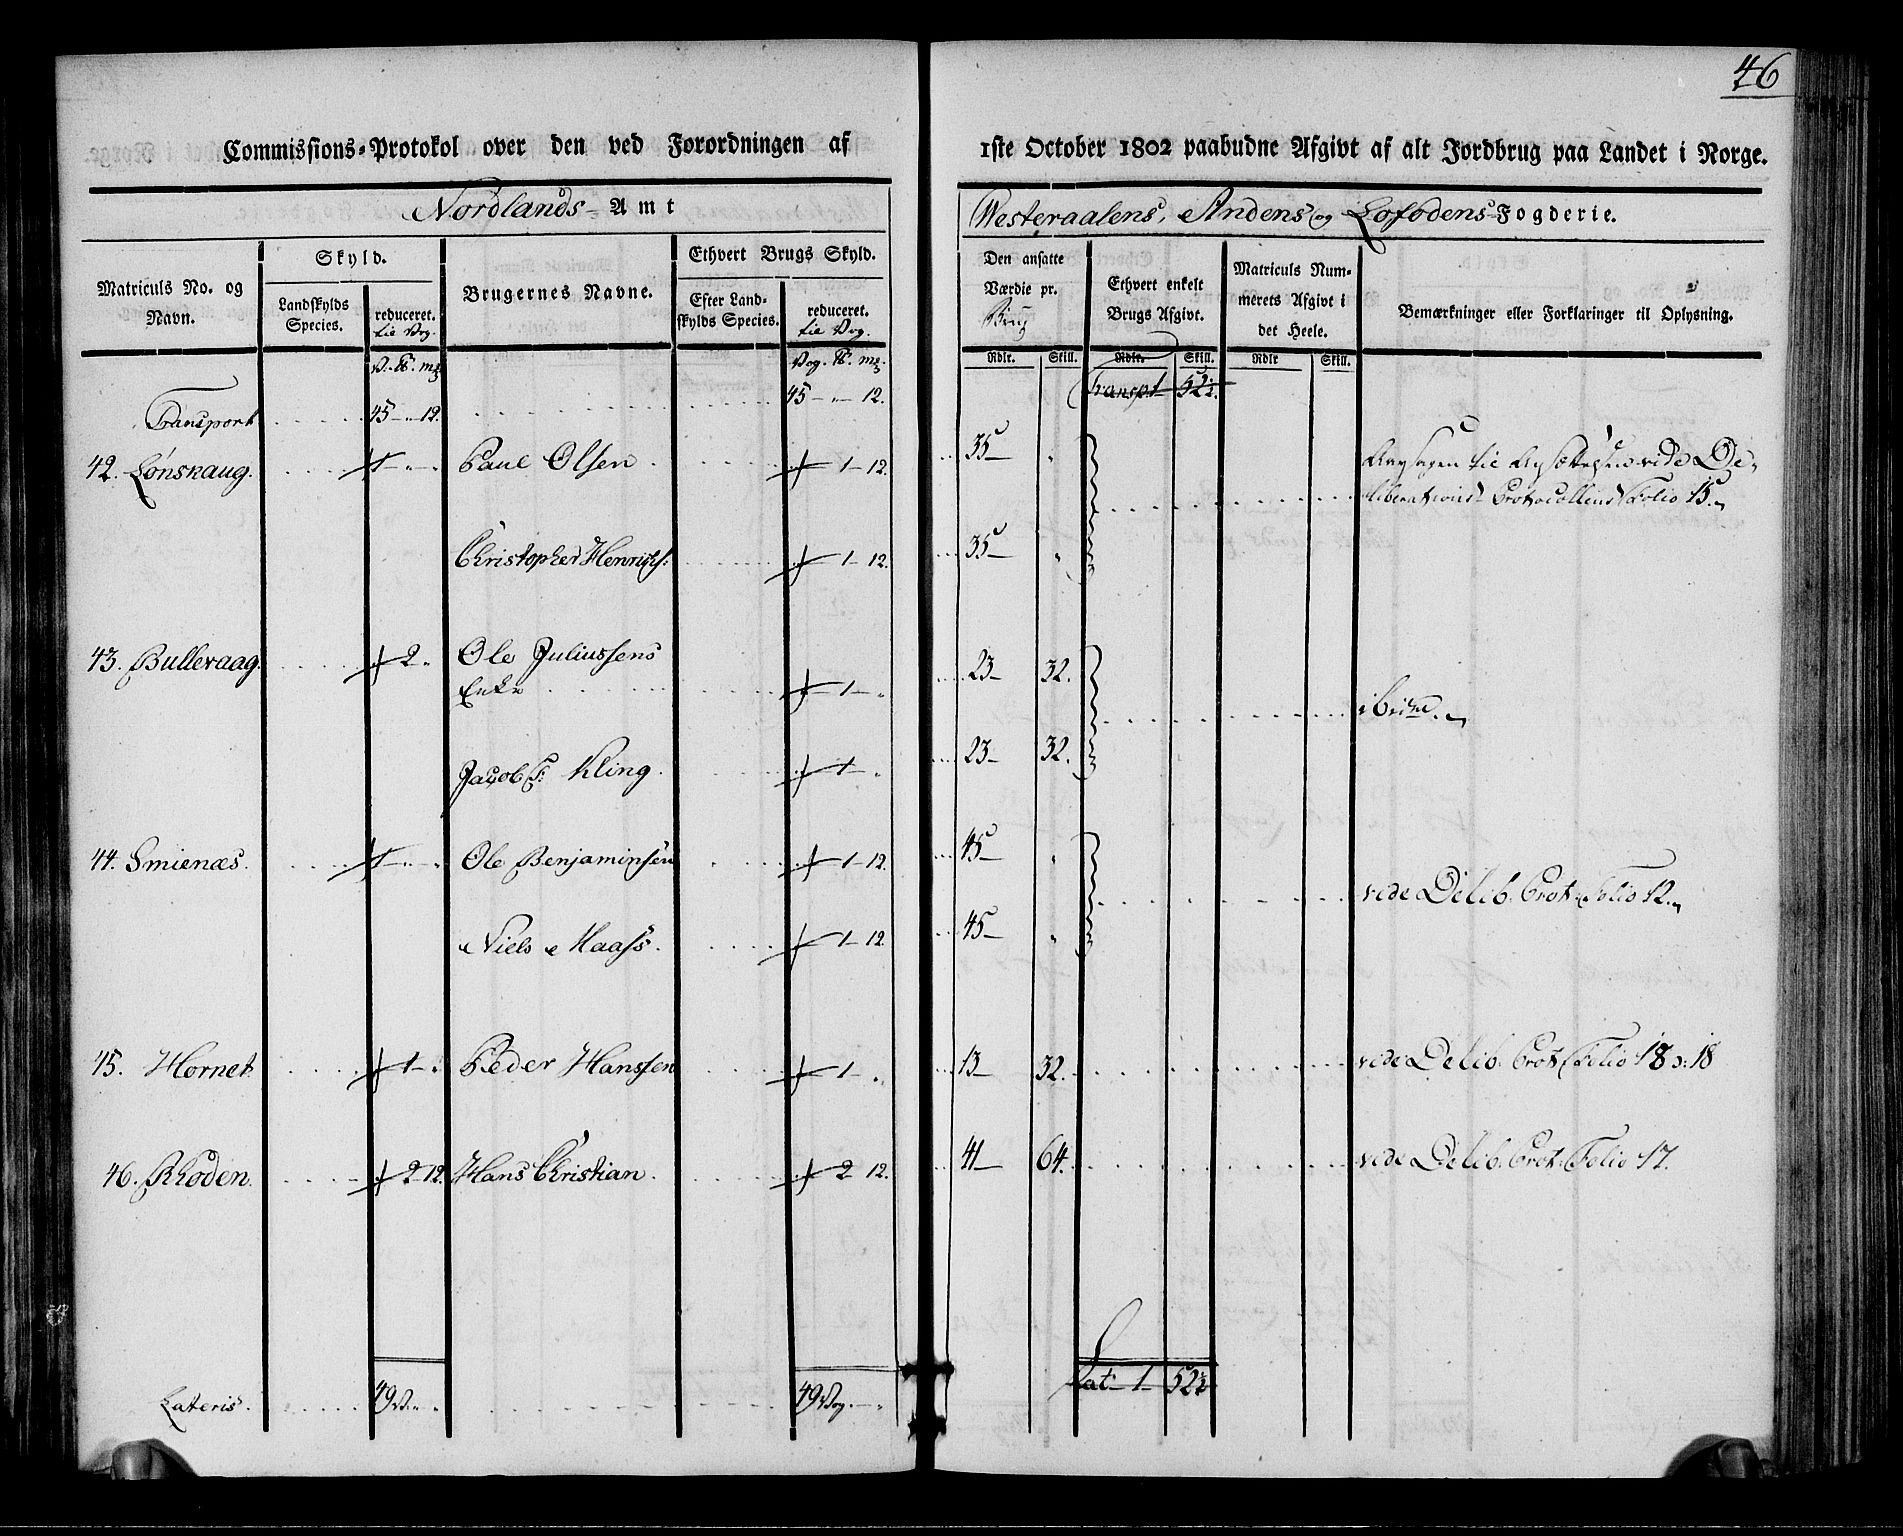 46
Commissions-Protokol over den ved Forordningen af 1ste October 1802 paabudne Afgivt af alt Jordbrug paa Landet i Norge.
Nordlands Amt
Westeraalens, Andens og Lofodens Fogderie.
Matriculs No. og Navn.
Skyld.
Landskylds Species.
reduceret. til Vog.
Brugernes Navne.
Ethvert Brugs Skyld.
Efter Landskylds Species.
reduceret. til Vog.
Den ansatte Værdie pr. Brug
Ethvert enkelt Brugs Afgivt.
Matriculs Nummerets Afgivt i det Heele.
Bemærkninger eller Forklaringer til Oplysning.
Rdlr. Skill. Rdlr. Skill. Rdlr Skill.
Transport 45 - " - 12. 45 - " - 12. Transpt 1 - 52½.
42. Lønskaug. 1 - " - Paul Olsen - 1 - 12. 35 - "
Aarsagen til Ansættelse vide De-
liberations Protocollens Folio 15.
Christopher Henrichs: - 1 - 12. 35 - "
43. Bulleraag. - 2 - Ole Juliussens
Enke - 1 - " 23 - 32.
ibid.
Jacob F: Kling. - 1 - " 23 - 32.
44. Smienæs. 1 - " - Ole Benjaminsen - 1 - 12. 45 - "
vide Delib. Prot. Folio 12.
Niels Haass. - 1 - 12. 45 - "
45. Hornet - 1 - Peder Hanssen - 1 - " 13 - 32. vide Delib. Prot. Folio 18 o: 18
46. Rhoden. - 2 - 12. Hans Christian. - 2 - 12. 41 - 64. vide Delib. Prot. Folio 17.
Lateris. 49 V. - " 49 Vog. - " Lat 1 - 52½